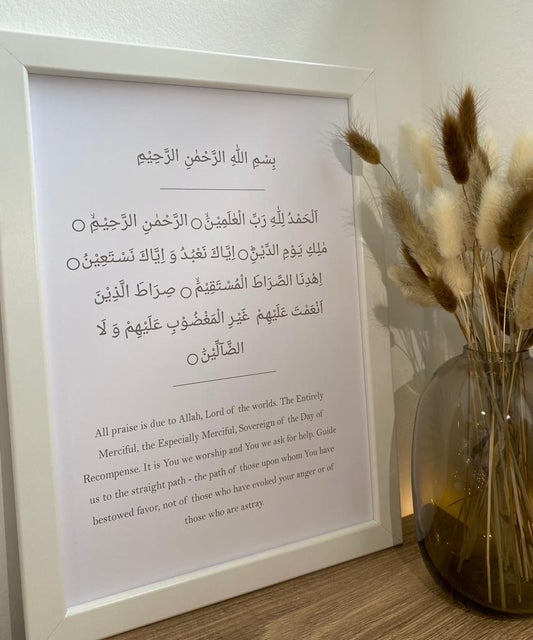 بِسْمِ اللّٰهِ الرَّحْمٰنِ الرَّحِيْمِ
اَلْحَمْدُ لِلّٰهِ رَبِّ الْعٰلَمِيْنَۙ○ الرَّحْمٰنِ الرَّحِيْمِۙ○
مٰلِكِ يَوْمِ الدِّيْنِؕ○ اِيَّاكَ نَعْبُدُ وَ اِيَّاكَ نَسْتَعِيْنُؕ○
اِهْدِنَا الصِّرَاطَ الْمُسْتَقِيْمَۙ○ صِرَاطَ الَّذِيْنَ
اَنْعَمْتَ عَلَيْهِمْ غَيْرِ الْمَغْضُوْبِ عَلَيْهِمْ وَ لَا
الضَّآلِّيْنَ○
All praise is due to Allah, Lord of the worlds. The Entirely
Merciful, the Especially Merciful, Sovereign of the Day of
Recompense. It is You we worship and You we ask for help. Guide
us to the straight path - the path of those upon whom You have
bestowed favor, not of those who have evoked your anger or of
those who are astray.